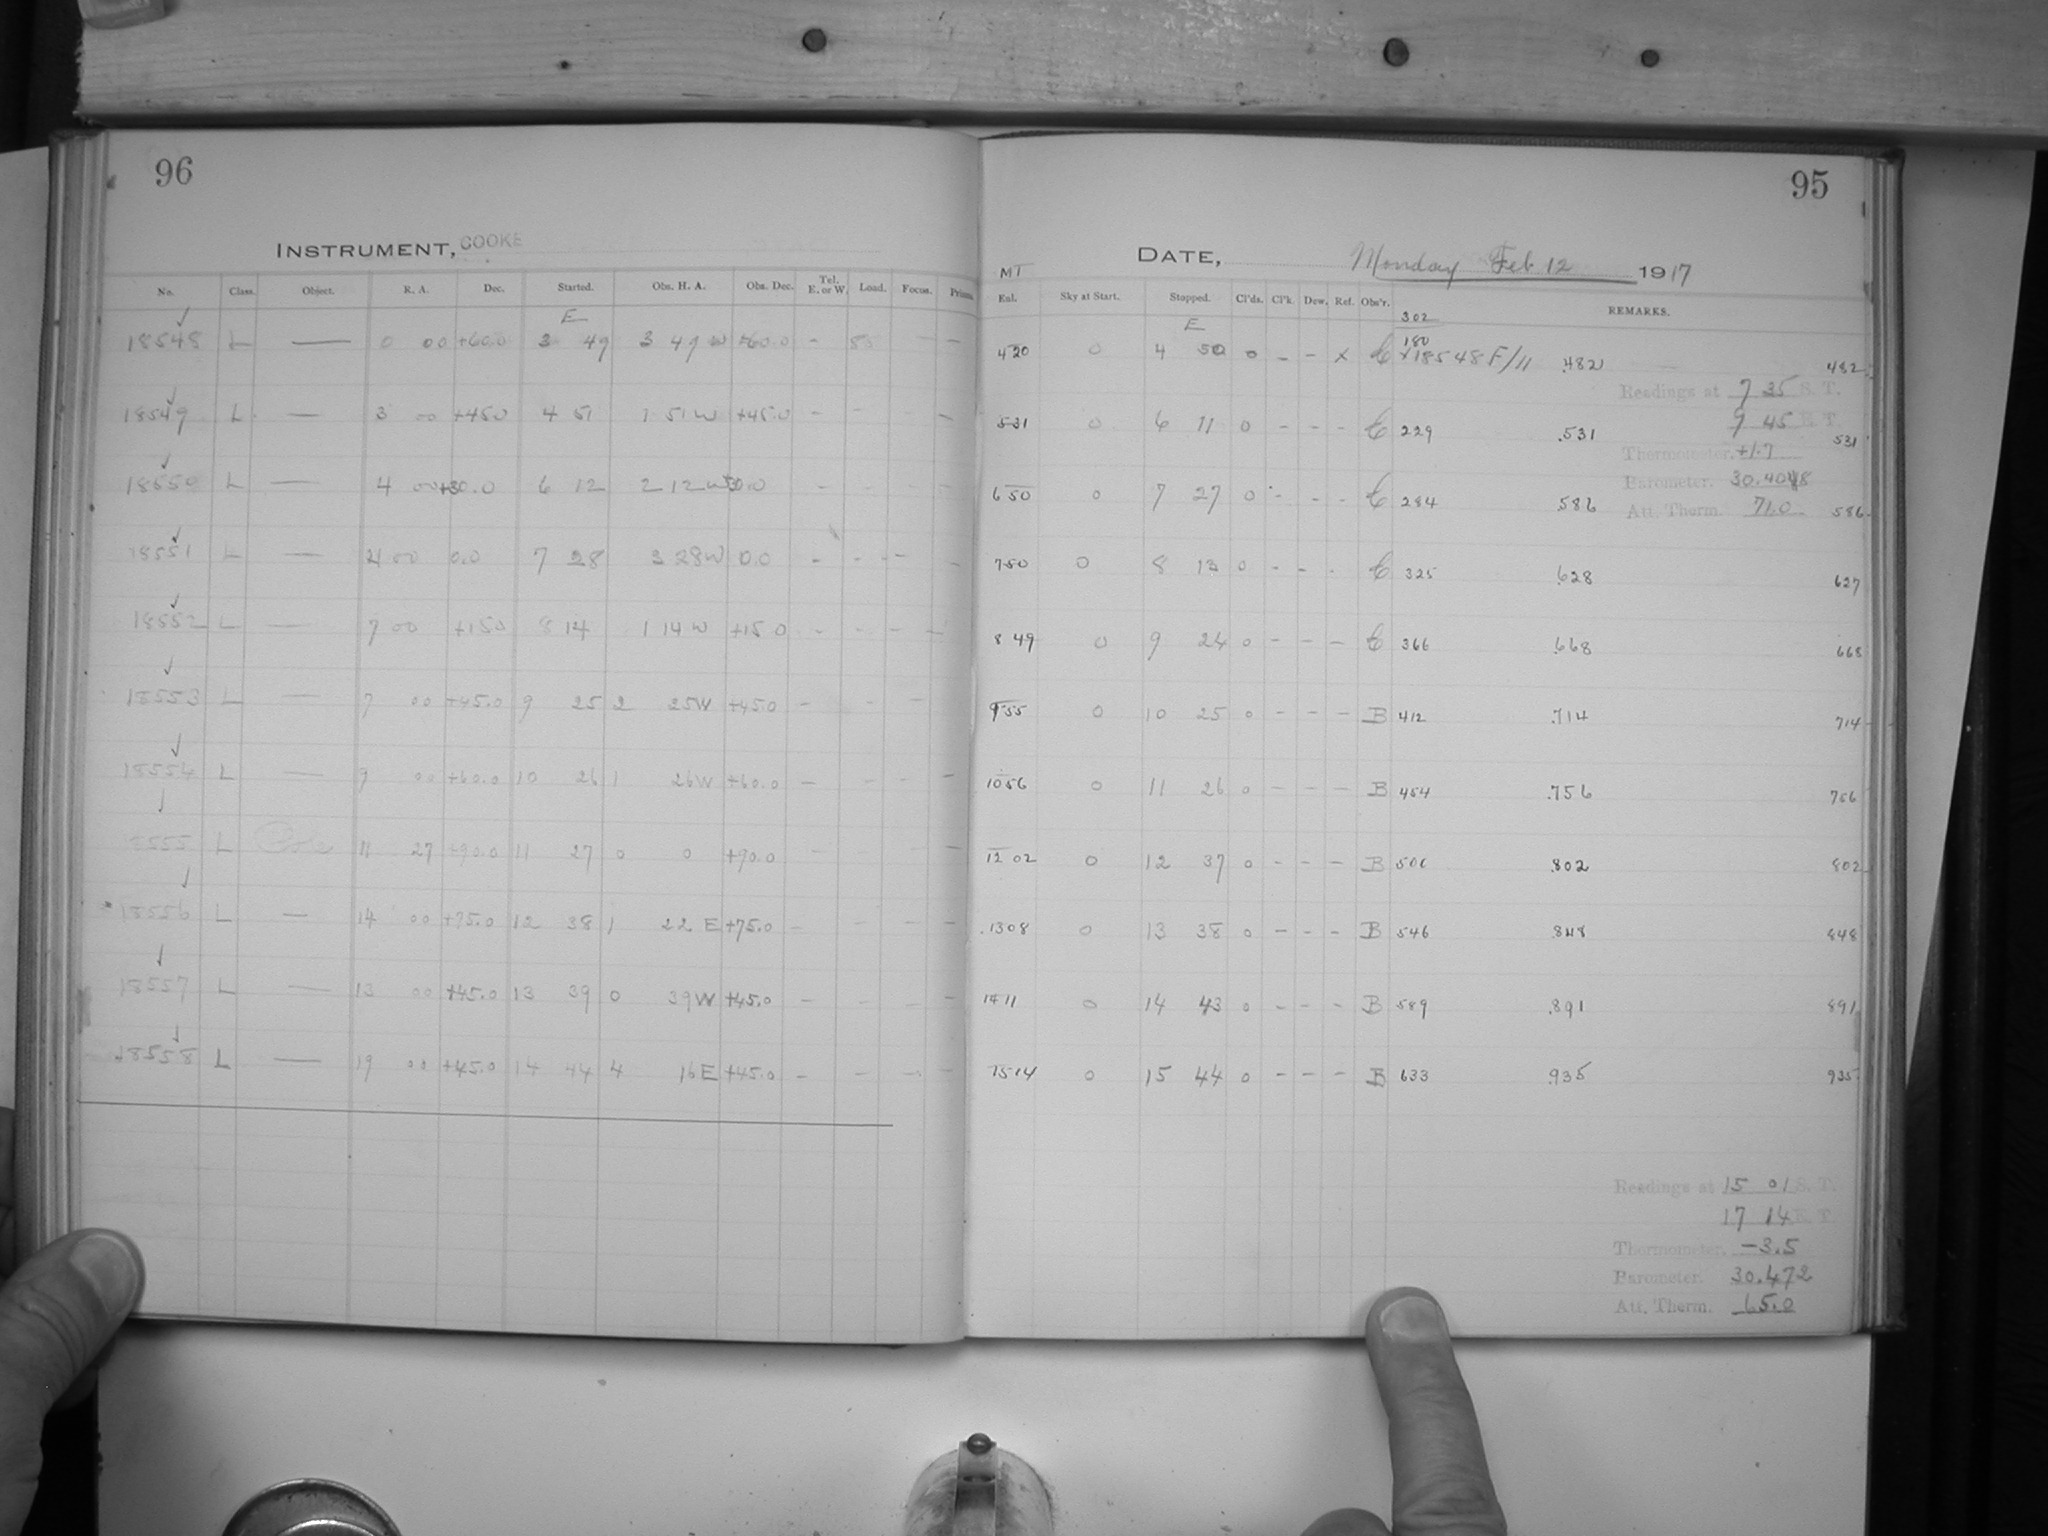 96
INSTRUMENT, COOKE
No. Class. Object. R. A. Dec. Started. Obs. H. A. Obs. Dec. Tel. E. or W. Load. Focus.
E
18548 L — 0 00 +60.0 3 49 3 49 W +60.0 - — —
18549 L — 3 00 +45.0 4 51 1 51 W +45.0 - - —
18550 L — 4 00 +30.0 6 12 2 12 W 30.0 - - - -
18551 L — 4 00 0.0 7 28 3 28 W 0.0 - - - -
18552 L — 7 00 +15.0 8 14 1 14 W +15.0 - - - -
18553 L — 7 00 +45.0 9 25 2 25 W +45.0 - - -
18554 L — 9 00 +60.0 10 26 1 26 W +60.0 - - - -
L Pole 11 27 +90.0 11 27 0 0 +90.0 - - -
18556 L — 14 00 +75.0 12 38 1 22 E +75.0 - - - -
18557 L — 13 00 +45.0 13 39 0 39 W +45.0 - - - -
18558 L — 19 00 +45.0 14 44 4 16 E +45.0 - - - -
95
DATE, Monday Feb 12 1917
MT
Eal. Sky at Start. Stopped. Cl'ds. Cl'k. Dew. Ref. Obs'r. REMARKS.
302
E
180
4 20 0 4 50 0 - - x C x18548 F/11 .482 482
Readings at 7 35 S. T.
9 45 E. T.
5 31 0 6 11 0 - - - C 229 .531 531
Thermometer. +1.7
Barometer.
6 50 0 7 27 0 - - - C 284 .586 586
Att. Therm. 71.0
7 50 0 8 13 0 - - - C 325 .628 627
8 49 0 9 24 0 - - - C 366 .668 668
9 55 0 10 25 0 - - - B 412 .714 714
10 56 0 11 26 0 - - - B 454 .756 756
12 02 0 12 37 0 - - - B 500 .802 802
13 08 0 13 38 0 - - - B 546 .848 848
14 11 0 14 43 0 - - - B 589 .891 891
15 14 0 15 44 0 - - - B 633 .935 935
Readings at 15 01 S. T.
17 14 E. T.
Thermometer. -3.5
Barometer. 30.472
Att. Therm. 65.0